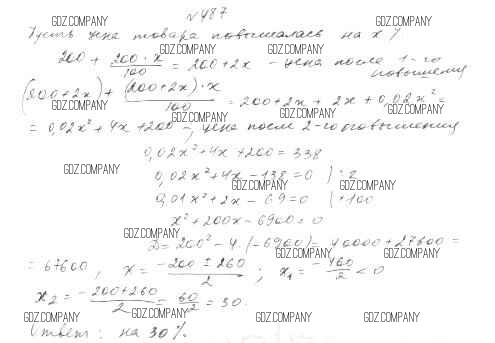 № 487
GDZ.COMPANY GDZ.COMPANY
Пусть цена товара повышалась на x %
GDZ.COMPANY GDZ.COMPANY
200 + 200·x/100 = 200+2x - цена после 1-го повышения
GDZ.COMPANY GDZ.COMPANY
(200+2x) + (200+2x)·x/100 = 200+2x+2x+0,02x² =
GDZ.COMPANY GDZ.COMPANY
= 0,02x²+4x+200 - цена после 2-го повышения
0,02x²+4x+200=338
GDZ.COMPANY
0,02x²+4x-138=0 |:2
GDZ.COMPANY GDZ.COMPANY
0,01x²+2x-69=0 |·100
x²+200x-6900=0
GDZ.COMPANY
D=200²-4·(-6900)=40000+27600=
GDZ.COMPANY GDZ.COMPANY
= 67600, x = (-200±260)/2; x₁ = -460/2 < 0
x₂ = (-200+260)/2 = 60/2 = 30.
GDZ.COMPANY GDZ.COMPANY GDZ.COMPANY GDZ.COMPANY
Ответ: на 30%.